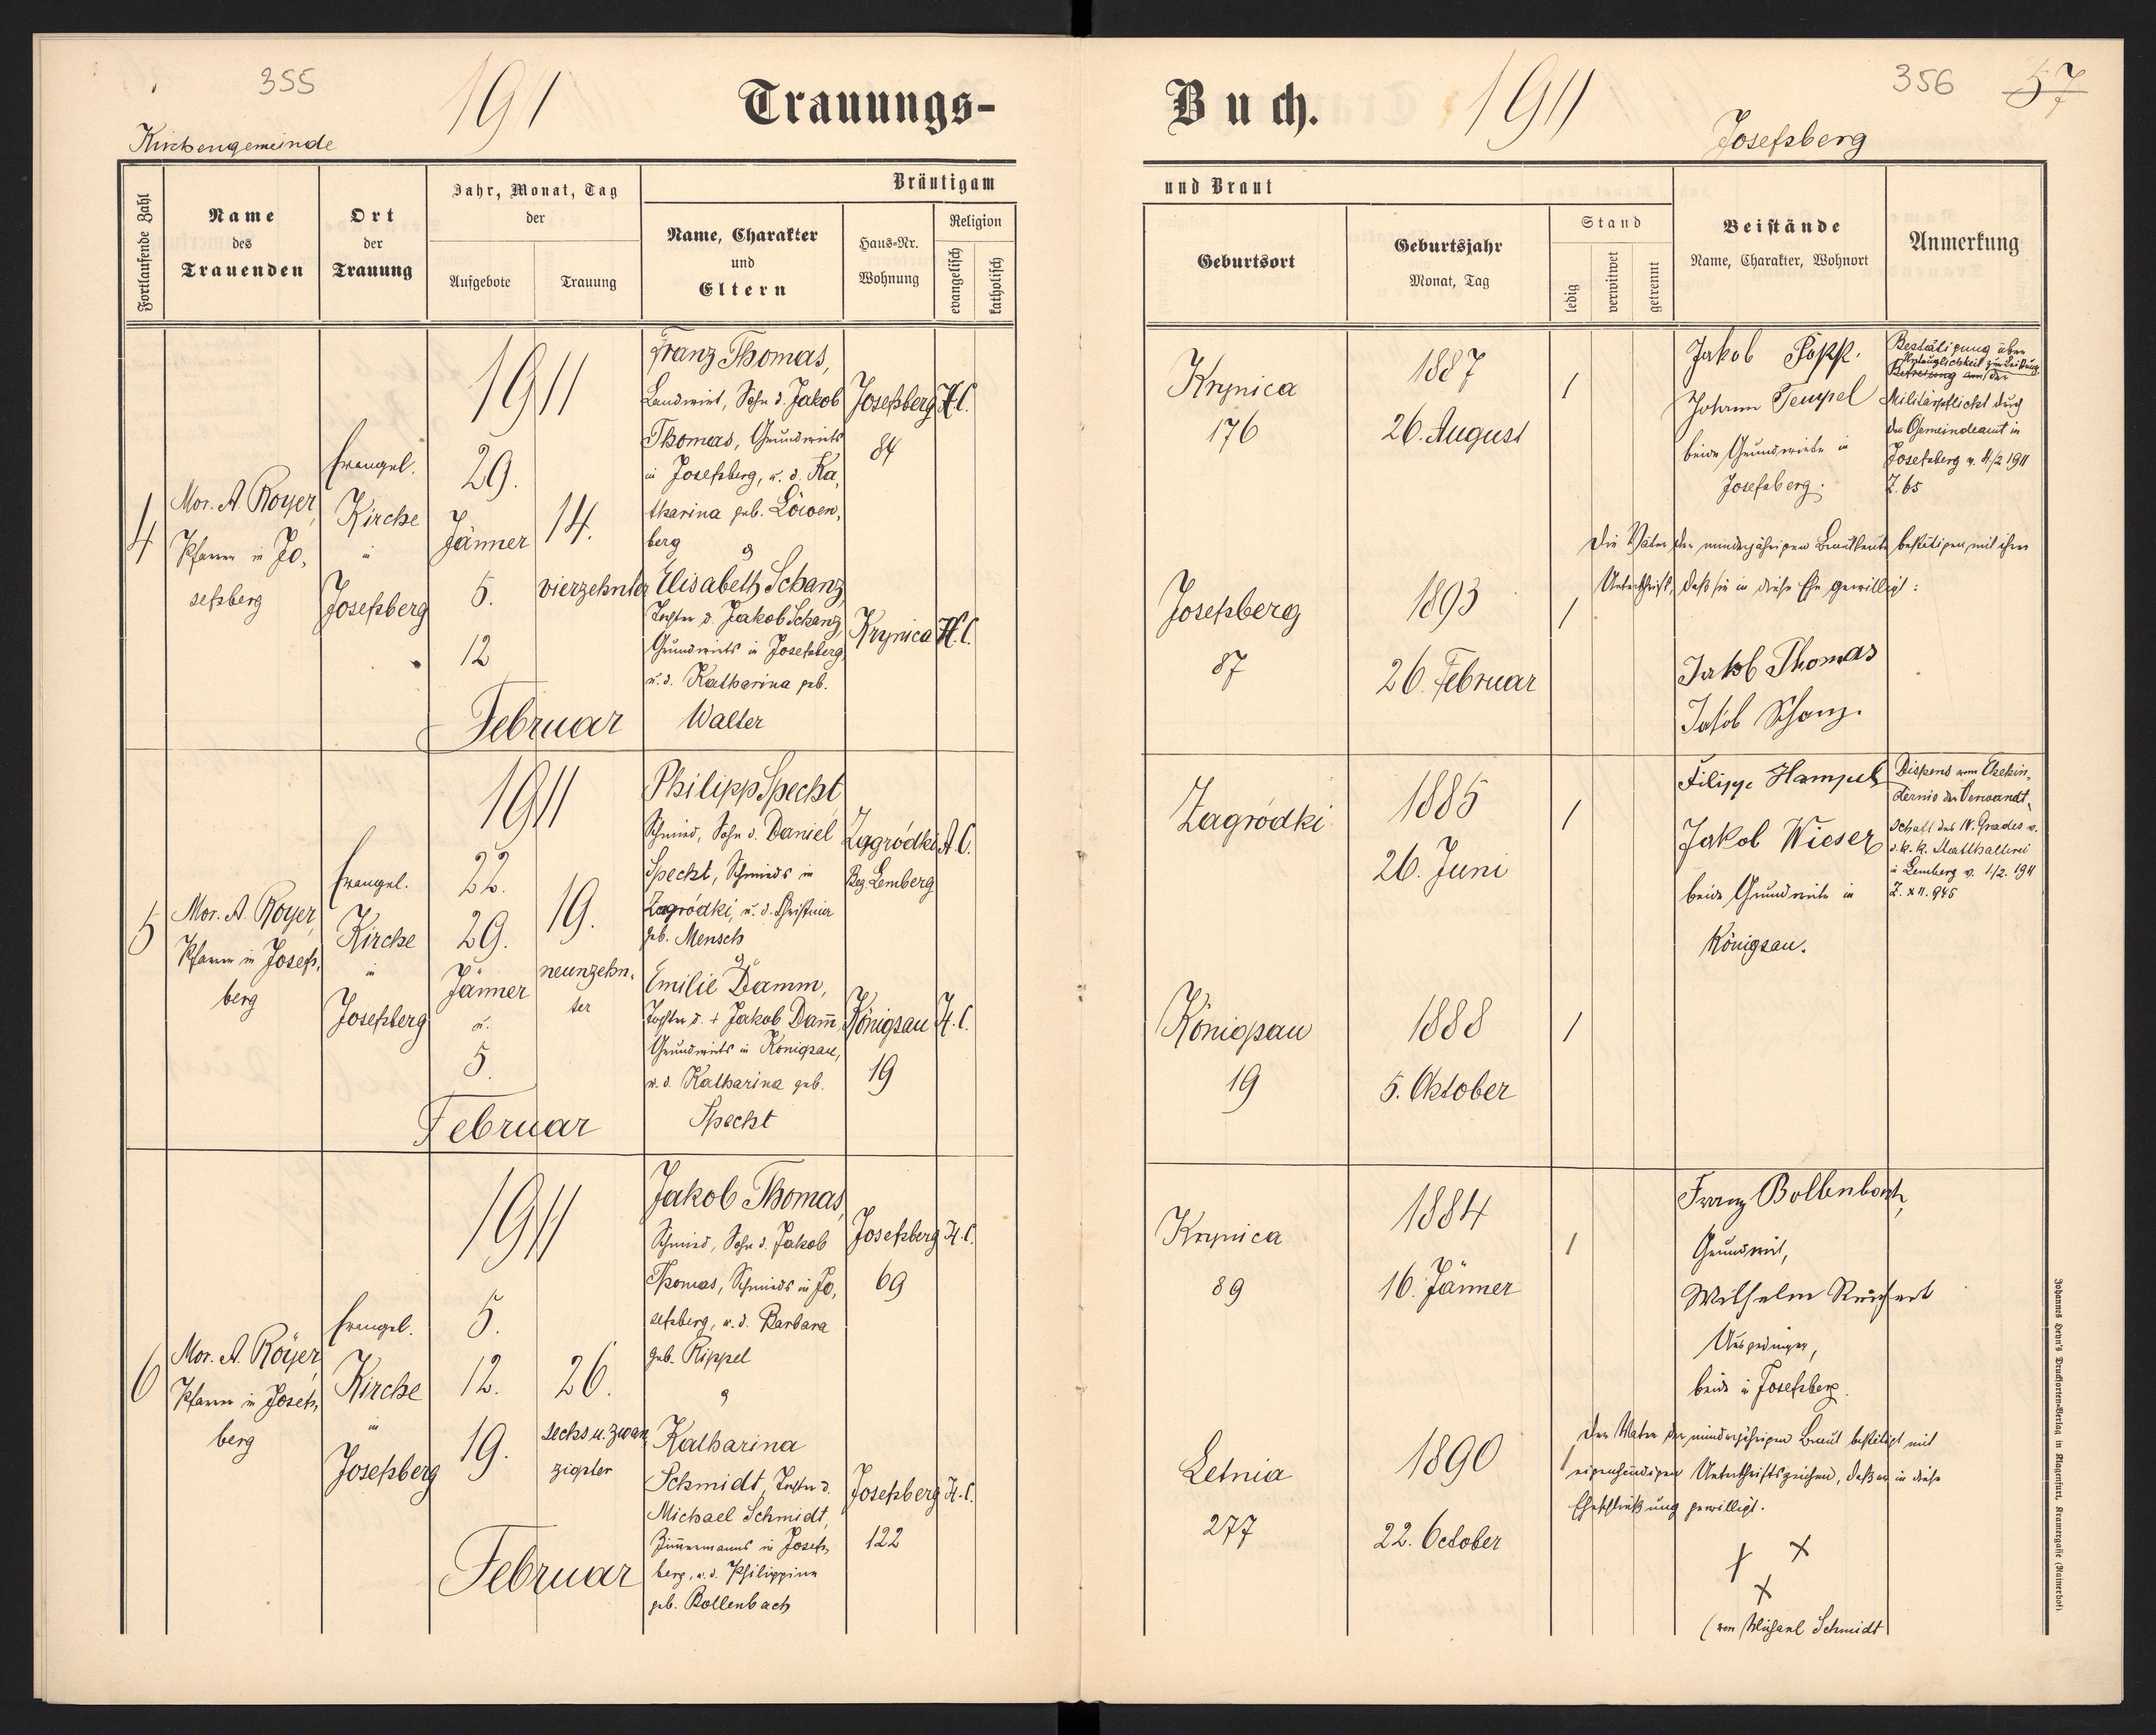 355
191
Trauungs-
Kirchengemeinde
Fortlaufende Zahl
Name
des
Trauenden
Ort
der
Trauung
Jahr, Monat, Tag
der
Aufgebote
Trauung
Bräutigam
Name, Charakter
und
Eltern
Haus-Nr.
Wohnung
Religion
evangelisch
katholisch
4
Mor. A. Royer,
Pfarrer in Jo,
sefsberg
Evangel.
Kirche
in
Josefsberg
1911
29.
Jänner
5.
12
Februar
14.
vierzehnter
Franz Thomas,
Landwirt, Sohn d. Jakob
Thomas, Grundwirts
in Josefsberg, u. d. Ka,
tharina geb. Löwen,
berg
Elisabeth Schanz,
Tochter d. Jakob Schanz,
Grundwirts in Josefsberg,
u. d. Katharina geb.
Walter
Josefsberg
84
H.C.
Krynica
H.C.
5
Mor. A. Royer,
Pfarrer in Josefs,
berg
Evangel.
Kirche
in
Josefsberg
1911
22.
29.
Jänner
u.
5.
Februar
19.
neunzehn,
ter
Philipp Specht
Schmied, Sohn d. Daniel
Specht, Schmieds in
Zagródki, u. d. Christina
geb. Mensch
Emilie Damm,
Tochter d. + Jakob Dam̄,
Grundwirts in Königsau,
u. d. Katharina geb.
Specht
Zagródki
Bez. Lemberg
A.C.
Königsau
19
H.C.
6
Mor. A. Royer,
Pfarrer in Josefs,
berg
Evangel.
Kirche
in
Josefsberg
1911
5.
12.
19.
Februar
26.
sechs u. zwan
zigster
Jakob Thomas,
Schmied, Sohn d. Jakob
Thomas, Schmieds in Jo,
sefsberg, u. d. Barbara
geb. Rippel
Katharina
Schmidt, Tochter d.
Michael Schmidt,
Zim̄ermanns in Josefs,
berg, u. d. Philippina
geb. Bollenbach
Josefsberg
69
H.C.
Josefsberg
122
H.C.
Buch.
1911
356
57
Josefsberg
und Braut
Geburtsort
Geburtsjahr
Monat, Tag
Stand
ledig
verwitwet
getrennt
Beistände
Name, Charakter, Wohnort
Anmerkung
Krynica
176
1887
26. August
/
Jakob Popp.
Johann Tempel
beide Grundwirte in
Josefsberg.
Bestätigung über
Untauglichkeit zur Leistung
Befreiung aus der
Militärpflicht durch
das Gemeindeamt in
Josefsberg v. 4./2 1911
Z. 65
Die Väter der minderjährigen Brautleute bestätigen mit ihrer
Unterschrift, daß sie in diese Ehe gewilligt:
Josefsberg
87
1893
26. Februar
/
Jakob Thomas
Jakob Schanz.
Zagródki
1885
26. Juni
/
Filipp Hampel
Jakob Wieser
beide Grundwirte in
Königsau.
Dispens vom Ehehin,
dernis der Verwandt,
schaft des IV. Grades v.
d. k. k. Statthalterei
in Lemberg v. 1/2. 1911
Z. XII. 945
Königsau
19
1888
5. Oktober
/
Krynica
89
1884
16. Jänner
/
Franz Bollenbach,
Grundwirt,
Wilhelm Reichert
Ausgedinger,
beide in Josefsberg.
Der Vater der minderjährigen Braut bestätigt mit
eigenhändigen Unterschriftszeichen, daß er in diese
Eheschließung gewilligt.
Letnia
277
1890
22. October
/
+ +
+
(von Michael Schmidt
Johannes Heyn's Drucksorten-Verlag in Klagenfurt, Kramergasse (Rainerhof)